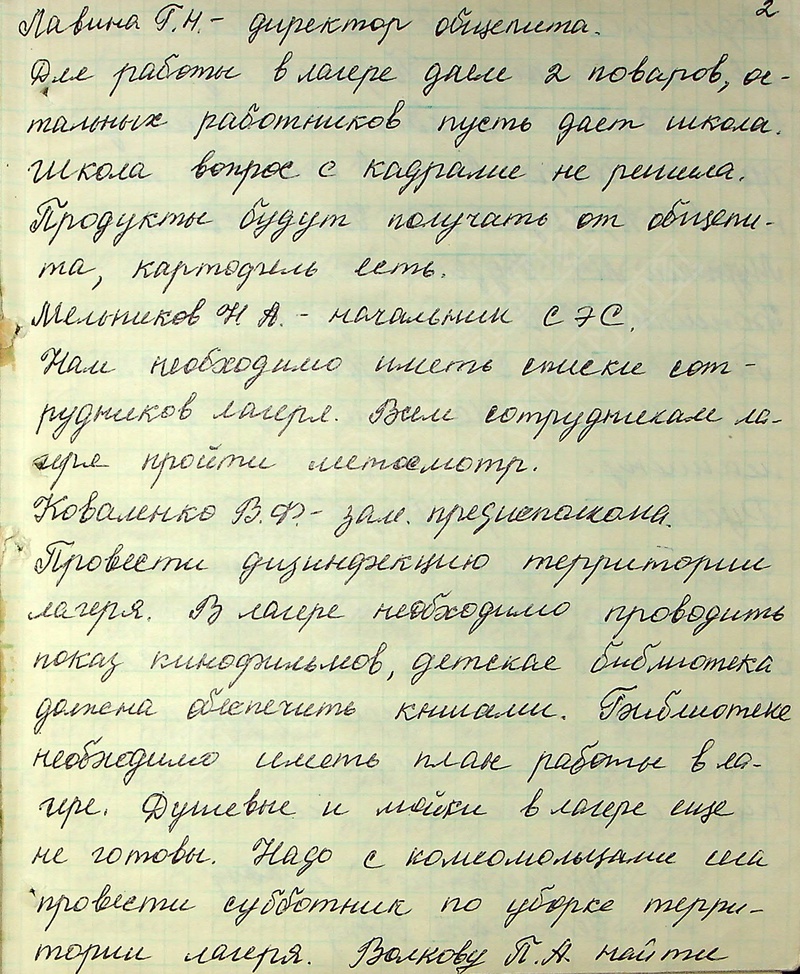 2
Лавина Г.Н. - директор общепита.
Для работы в лагере даем 2 поваров, ос-
тальных работников пусть дает школа.
Школа вопрос с кадрами не решила.
Продукты будут получать от общепи-
та, картофель есть.
Мельников Н А. - начальник СЭС.
Нам необходимо иметь списки сот-
рудников лагеря. Всем сотрудникам ла-
геря пройти метосмотр.
Коваленко В.Ф. - зам. предисполкома.
Провести дизинфекцию территории
лагеря. В лагере необходимо проводить
показ кинофильмов, детская библиотека
должна обеспечить книгами. Библиотеке
необходимо иметь план работы в ла-
гере. Душевые и мойки в лагере еще
не готовы. Надо с комсомольцами села
провести субботник по уборке терри-
тории лагеря. Волкову П.А. найти